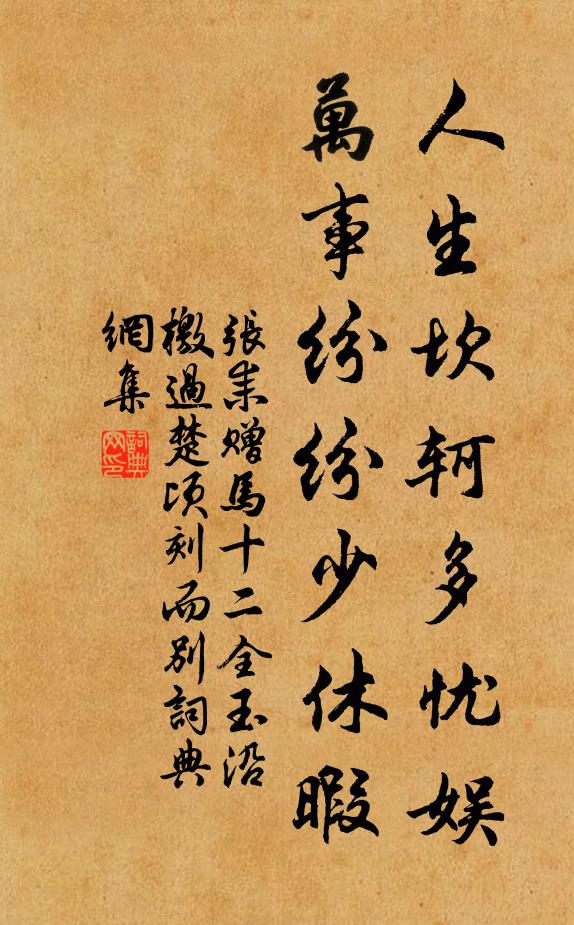 人生坎軻多忧娱
萬事紛紛少休暇
張耒贈馬十二全玉沿
檄過楚頃刻而別詞典
網集
詞典
网印